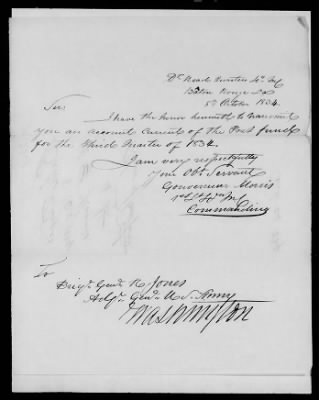 Hd. Quarters 4th Inf
Baton Rouge La
5th October 1832.
Sir.
I have the honor herewith to transmit
you an account current of the Post fund
for the Third Quarter of 1832.
I am very respectfully
Your Obt. Servant
Gouverneur Morris
1st Lt 4th Inf
Commanding
To
Brigr. Genl. R. Jones
Adjt. Genl. U.S. Army
Washington